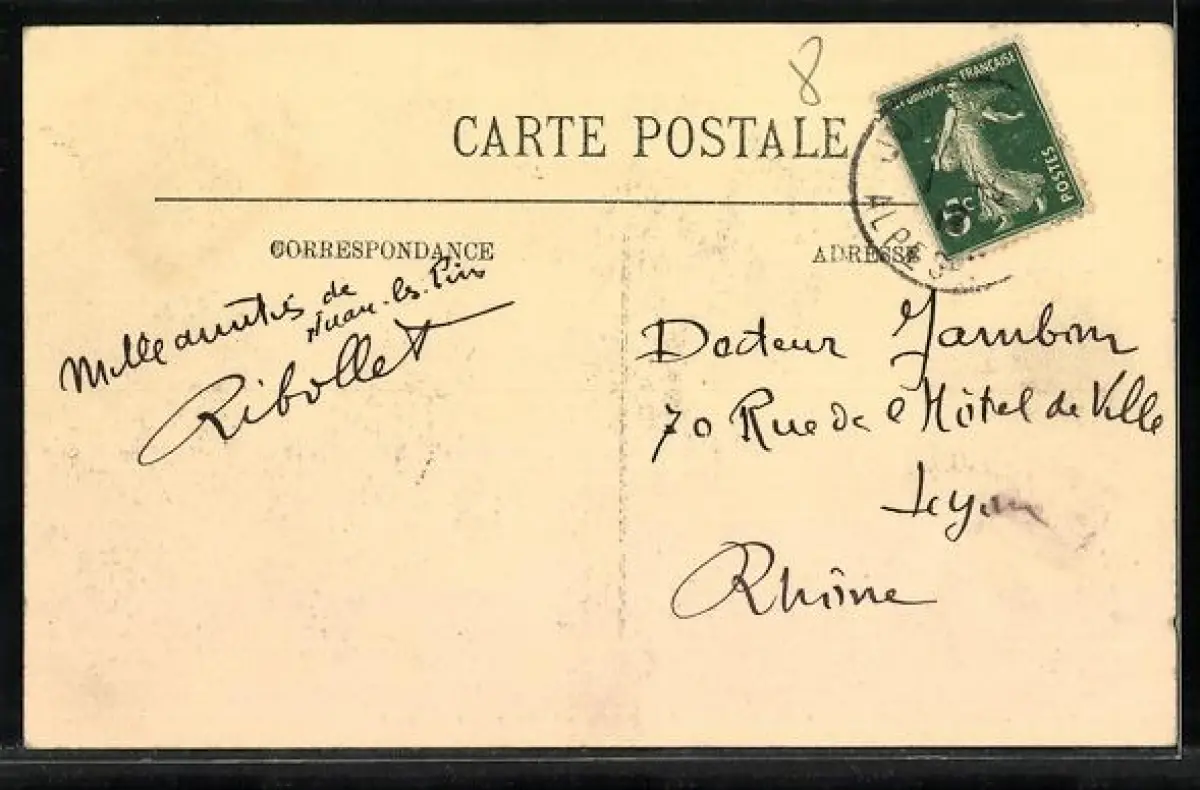 8
CARTE POSTALE
RÉPUBLIQUE FRANÇAISE
POSTES
5c
ALPES
CORRESPONDANCE
ADRESSE
Mille amitiés de
Juan-les-Pins
Ribollet
Docteur Jambon
70 Rue de l'Hôtel de Ville
Lyon
Rhône